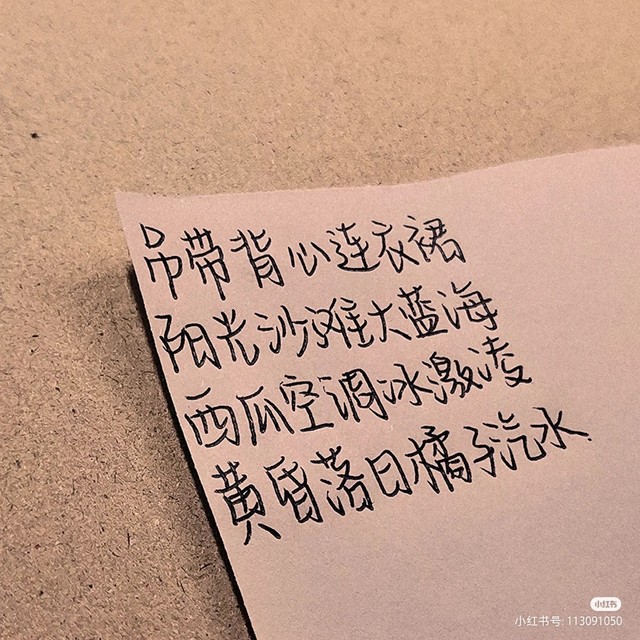 吊带背心连衣裙
阳光沙滩大蓝海
西瓜空调冰激凌
黄昏落日橘子汽水
小红书
小红书号: 113091050